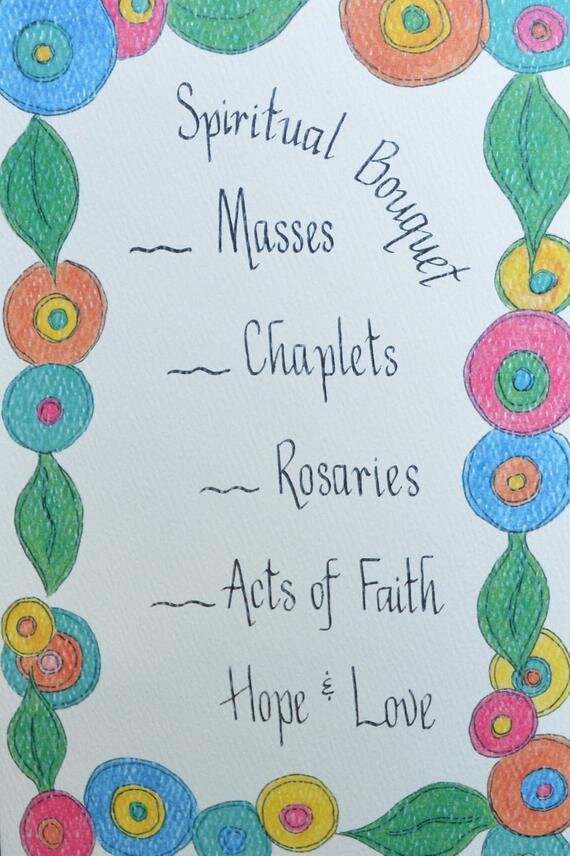 Spiritual Bouquet
__ Masses
__ Chaplets
__ Rosaries
__ Acts of Faith
Hope & Love